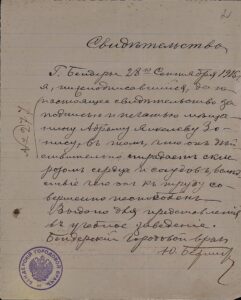 2
Свидѣтельство
Г. Бендеры 28го Сентября 1915
я, нижеподписавшійся, далъ
настоящее свидѣтельство за
подписью и печатью мѣща-
нину Абраму Янкелеву
въ томъ, что онъ дѣй-
ствительно страдаетъ скле-
розомъ сердца и сосудовъ, вслѣд-
ствіе чего онъ къ труду со-
вершенно неспособенъ.
Выдано для представленія
въ учебное заведеніе.
Бендерскій Городовой врачъ
№ 277